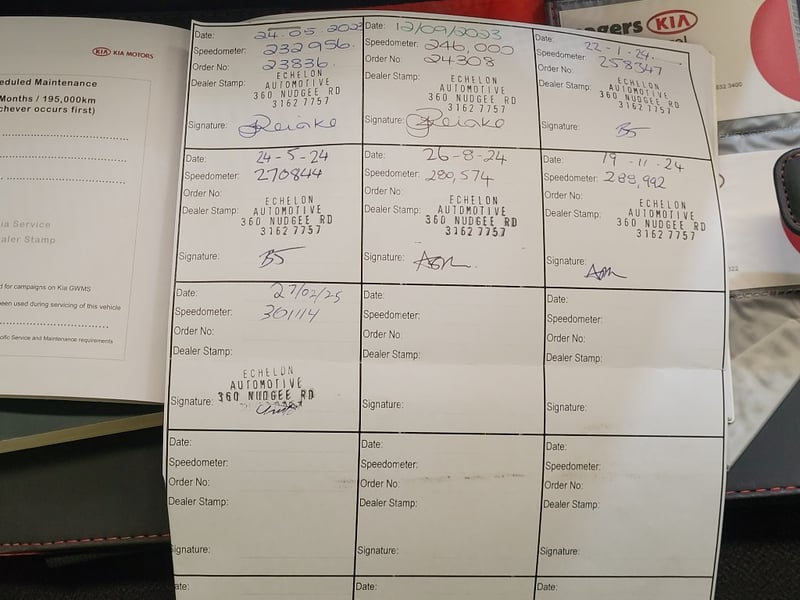 KIA KIA MOTORS
Scheduled Maintenance
Months / 195,000km
whichever occurs first)
Kia Service
Dealer Stamp
for campaigns on Kia GWMS
been used during servicing of this vehicle
Service and Maintenance requirements
Date: 24.05.2023
Speedometer: 232956.
Order No: 23836.
Dealer Stamp: ECHELON
AUTOMOTIVE
360 NUDGEE RD
3162 7757
Signature:
Date: 12/09/2023
Speedometer: 246,000
Order No: 24308
Dealer Stamp: ECHELON
AUTOMOTIVE
360 NUDGEE RD
3162 7757
Signature:
Date: 22-1-24
Speedometer: 258347
Order No:
Dealer Stamp: ECHELON
AUTOMOTIVE
360 NUDGEE RD
3162 7757
Signature:
Date: 24-5-24
Speedometer: 270844
Order No:
Dealer Stamp: ECHELON
AUTOMOTIVE
360 NUDGEE RD
3162 7757
Signature:
Date: 26-8-24
Speedometer: 280,574
Order No:
Dealer Stamp: ECHELON
AUTOMOTIVE
360 NUDGEE RD
3162 7757
Signature:
Date: 19-11-24
Speedometer: 289,992
Order No:
Dealer Stamp: ECHELON
AUTOMOTIVE
360 NUDGEE RD
3162 7757
Signature:
Date: 27/02/25
Speedometer: 301114
Order No:
Dealer Stamp:
ECHELON
AUTOMOTIVE
Signature: 360 NUDGEE RD
Date:
Speedometer:
Order No:
Dealer Stamp:
Signature:
Date:
Speedometer:
Order No:
Dealer Stamp:
Signature:
Date:
Speedometer:
Order No:
Dealer Stamp:
Signature:
Date:
Speedometer:
Order No:
Dealer Stamp:
Signature:
Date:
Speedometer:
Order No:
Dealer Stamp:
Signature:
Date:
Date:
Date:
KIA
832 3400
322